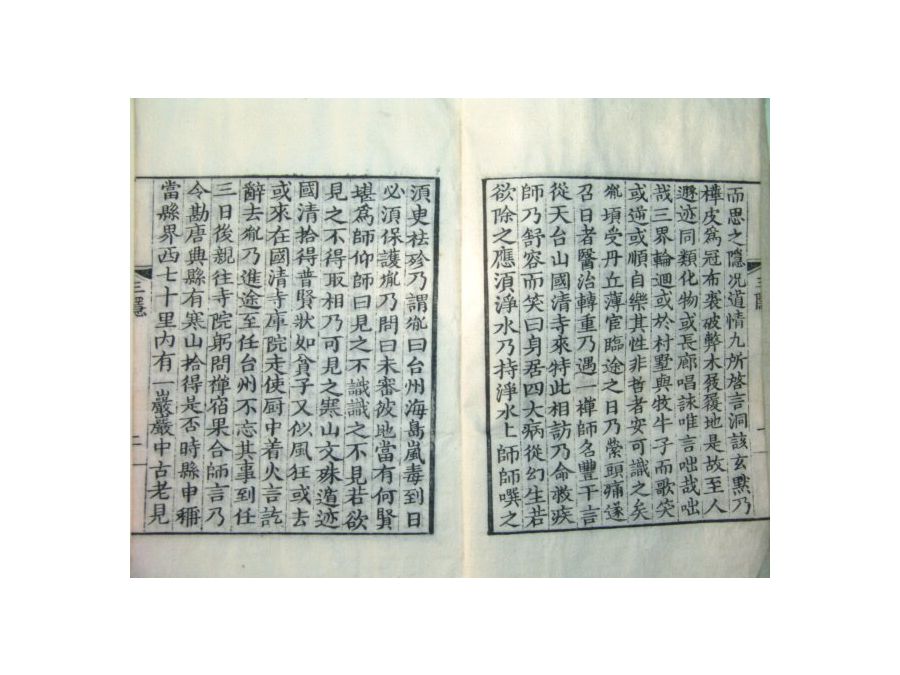 而思之隐况道情凢所啓言洞該玄默乃
樺皮爲冠布裘破弊木屐履地是故至人
遯迹同類化物或長廊唱詠唯言咄哉咄
哉三界輪迴或於村墅與牧牛子而歌笑
或逆或順自樂其性非哲者安可識之矣
胤頃受丹丘薄宦臨途之日乃縈頭痛遂
召日者醫治轉重乃遇一禪師名豐干言
從天台山國清寺來特此相訪乃命救疾
師乃舒容而笑曰身居四大病從幻生若
欲除之應須淨水乃持淨水上師師噀之
三隱
一
須臾祛殄乃謂胤曰台州海島嵐毒到日
必須保護胤乃問曰未審彼地當有何賢
堪爲師仰師曰見之不識識之不見若欲
見之不得取相乃可見之寒山文殊遁迹
國清拾得普賢狀如貧子又似風狂或去
或來在國清寺庫院走使厨中着火言訖
辭去胤乃進途至任台州不忘其事到任
三日後親往寺院躬問禪宿果合師言乃
令勘唐興縣有寒山拾得是否時縣申稱
當縣界西七十里内有一巖巖中古老見
三隱
二